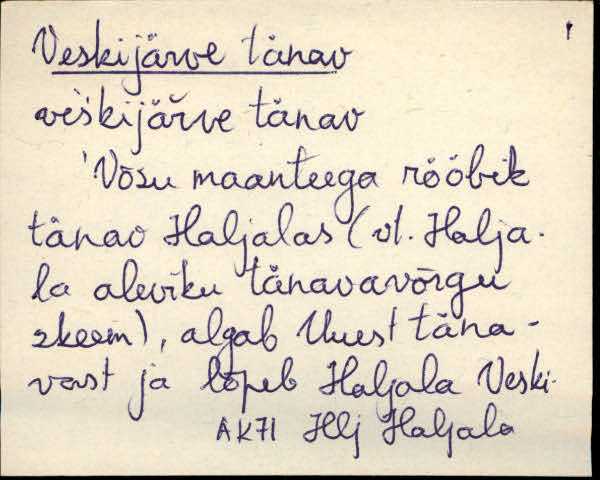 Veskijärve tänav
ve`skijäřve tänav
'Võsu maanteega rööbik
tänav Haljalas (vt. Halja-
la aleviku tänavavõrgu
skeem), algab Uuest täna-
vast ja lõpeb Haljala Veski-
AK71 Hlj Haljala